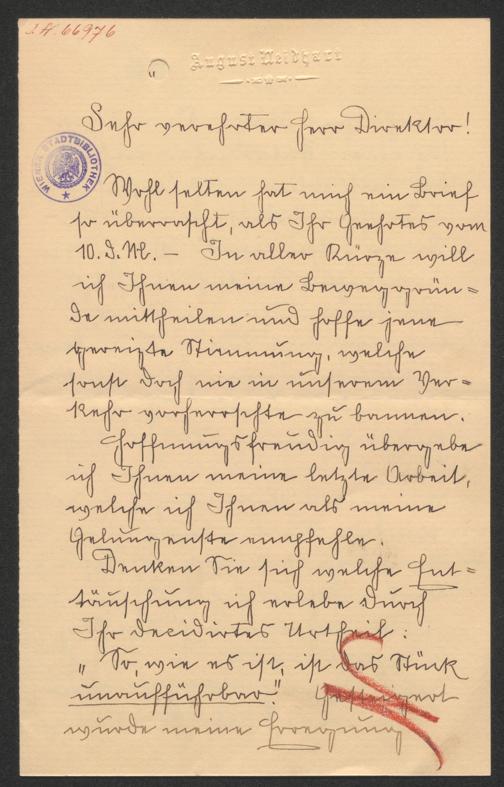 J.N. 66976
August Neidhart
WIENER STADTBIBLIOTHEK
Sehr verehrter Herr Direktor!
Wohl selten hat mich ein Brief
so überrascht, als Ihr Geehrtes vom
10. d. M. – In aller Kürze will
ich Ihnen meine Beweggrün=
de mittheilen und hoffe jene
gereizte Stimmung, welche
sonst doch nie in unserem Ver=
kehr vorherrschte zu bannen.
Hoffnungsfreudig übergebe
ich Ihnen meine letzte Arbeit,
welche ich Ihnen als meine
Gelungenste empfehle.
Denken Sie sich welche Ent=
täuschung ich erlebe durch
Ihr decidirtes Urtheil:
„So, wie es ist, ist das Stück
unaufführbar." Gesteigert
wurde meine Erregung